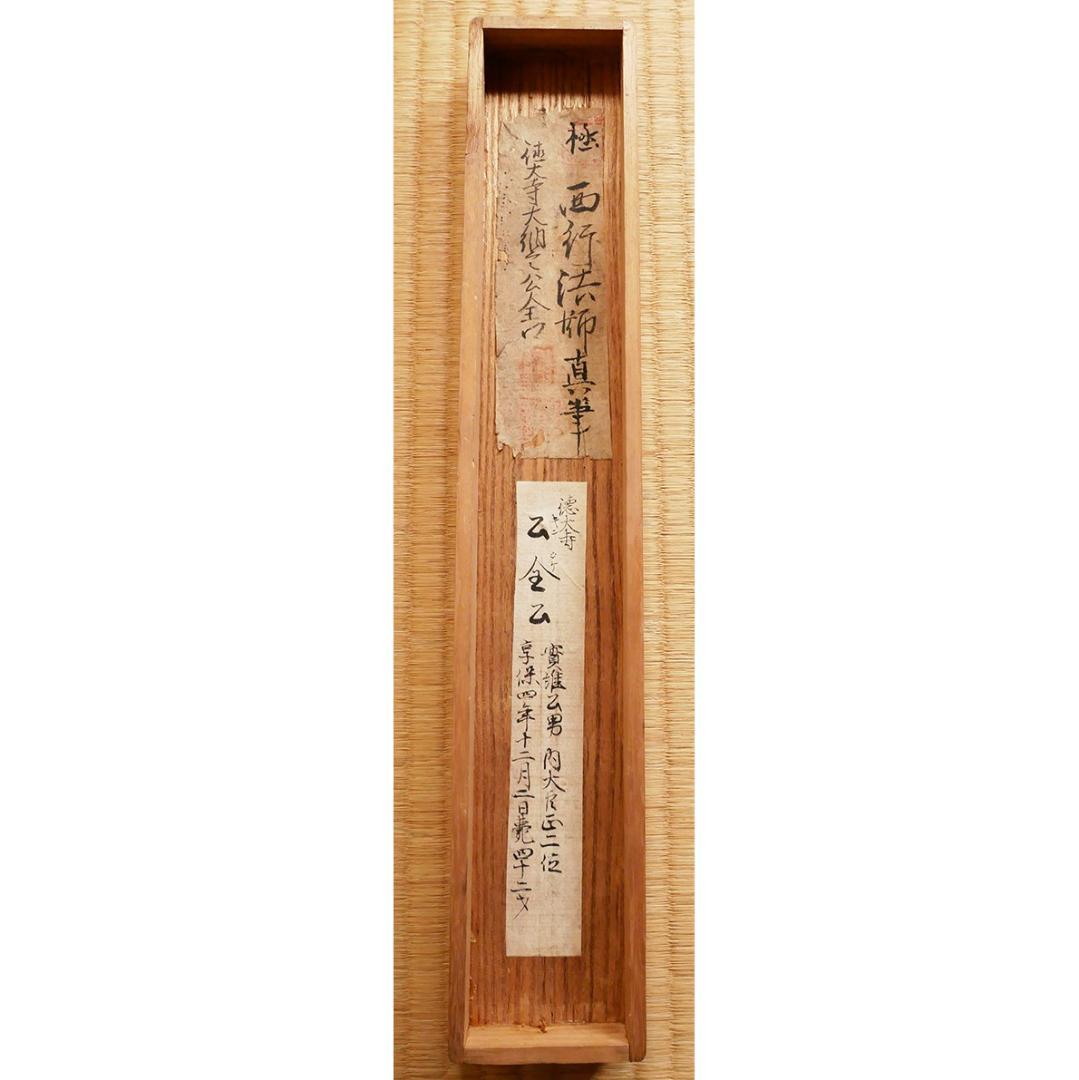 極 西行法師真筆
徳大寺大納言公全
徳大寺
公全公
實維公男 内大臣正二位
享保四年十二月二日薨四十二才